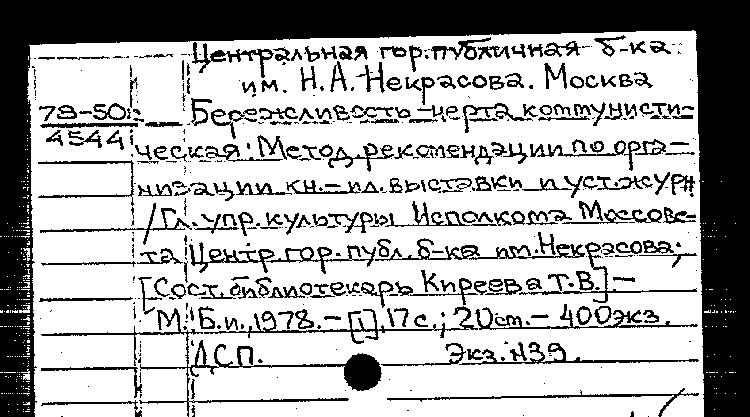 Центральная гор. публичная б-ка
им. Н.А. Некрасова. Москва
78-50
4544
Бережливость - черта коммунисти-
ческая: Метод. рекомендации по орга-
низации кн.-ил. выставки и уст. журн
/ Гл. упр. культуры Исполкома Моссове-
та Центр. гор. публ. б-ка им. Некрасова;
[Сост. библиотекарь Киреева Т.В.] -
М.: Б.и., 1978. - [1], 17 с.; 20 см. - 400 экз.
ДСП. Экз. №39.